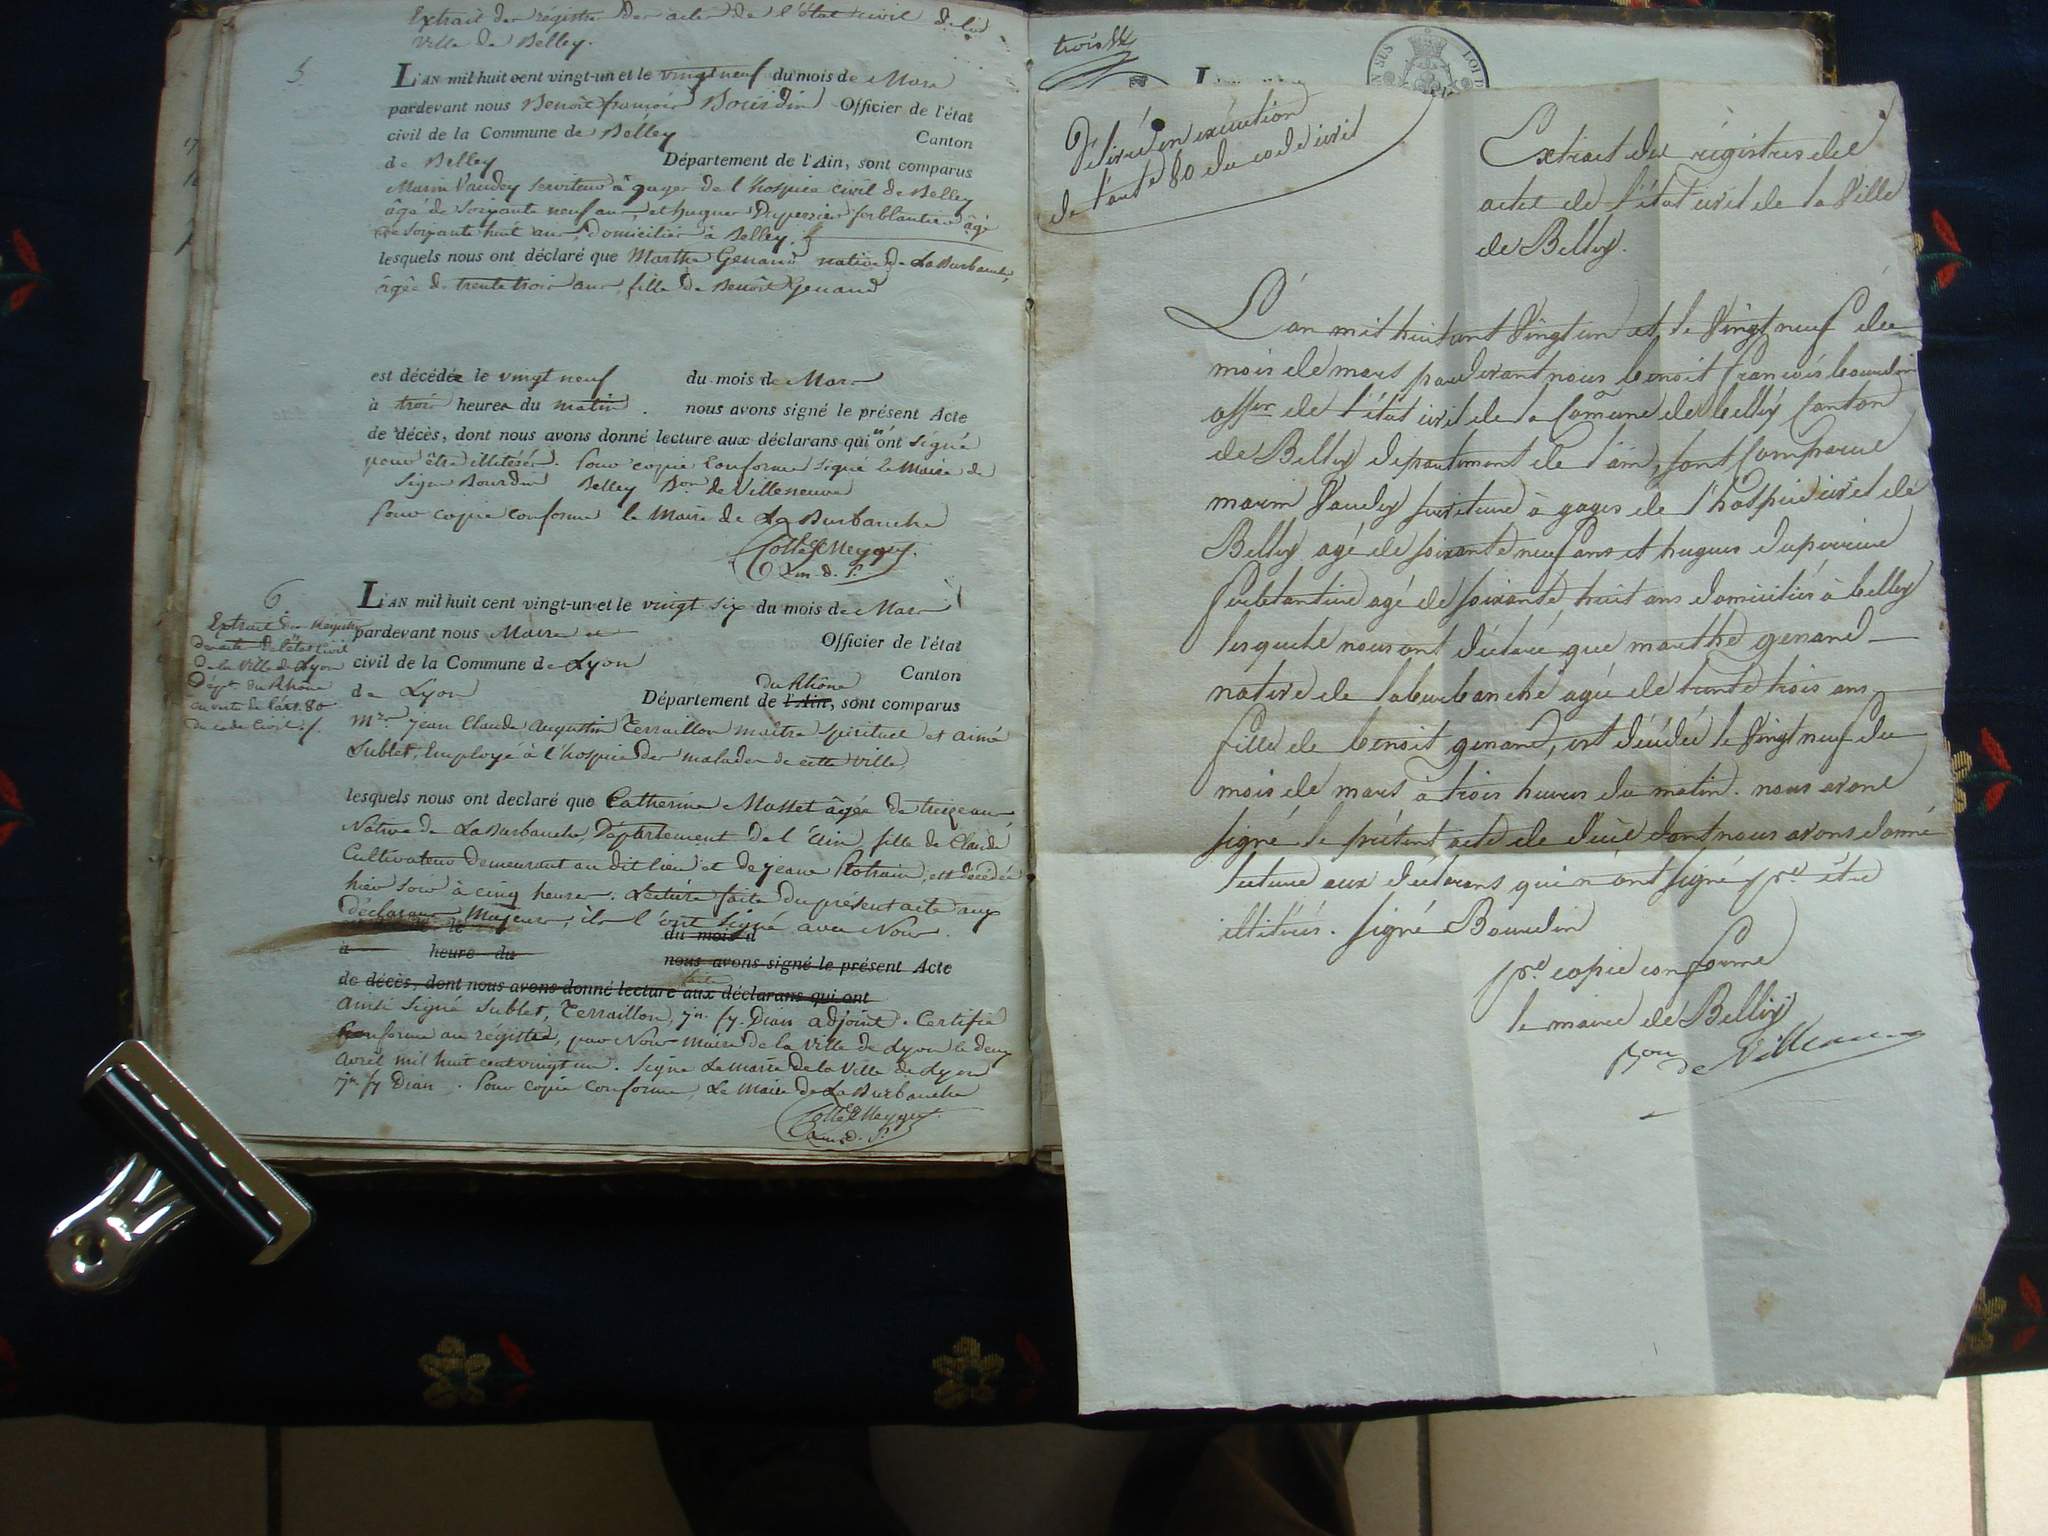 Extrait des régistres des actes de l'état civil de la
Ville de Belley.
5
L'AN mil huit cent vingt-un et le vingt neuf du mois de Mars
pardevant nous Benoit françois Bourdin Officier de l'état
civil de la Commune de Belley Canton
de Belley Département de l'Ain, sont comparus
Marin Vaudey serviteur à gages de l'hospice civil de Belley
âgé de soixante neuf ans, et hugues Duperrier ferblantier âgé
de soixante huit ans, domiciliés à Belley.
lesquels nous ont déclaré que Marthe Genand native de LaBurbanche,
âgée de trente trois ans, fille de Benoit Genand
est décédée le vingt neuf du mois de Mars
à trois heures du matin. nous avons signé le présent Acte
de décès, dont nous avons donné lecture aux déclarans qui n'ont signé
pour être illitérés. Pour copie conforme signé le Maire de
Signé Bourdin Belley Bon de Villeneuve
Pour copie conforme le Maire de LaBurbanche
6
Extrait des Régistres
des acte de létat Civil
de la Ville de Lyon
Dépt du Rhône
en verte de l'art. 80
du code Civil. /.
L'AN mil huit cent vingt-un et le vingt six du mois de Mars
pardevant nous Maire et Officier de l'état
civil de la Commune de Lyon Canton
du Rhône
de Lyon Département de l'Ain, sont comparus
Mrs. jean Claude augustin Terraillon maitre spirituel et aimé
Sublet, Employé à l'hospice des malades de cette ville
lesquels nous ont declaré que Catherine Mollet âgée de treize ans
Native de LaBurbanche, Département de l'Ain, fille de Claude
Cultivateur demeurant au dit lieu et de jeane, est décédée
hier soir à cinq heures. Lecture faite du présent acte aux
déclarans Majeurs, ils l'ont signé avec Nous.
du mois d
à heure du nous avons signé le présent Acte
faite
de décès, dont nous avons donné lecture aux déclarans qui ont
ainsi signé Sublet, Terraillon, jn. fy. Dian adjoint. Certifié
Conforme au régistre, par Nous Maire de la Ville de Lyon le deux
avril mil huit cent vingt un. Signé Le Maire de la Ville de Lyon
jn fy Dian. Pour copie Conforme, Le Maire de LaBurbanche
trois
Délivré en exécution
de l'art. 80 du code civil
Extrait des régistres des
actes de l'état civil de la Ville
de Belley.
L'an mil huit cent vingt un et le vingt neuf du
mois de mars pardevant nous benoit françois bourdin
offier de l'état civil de la Comune de belley Canton
de Belley departement de l'ain, sont Comparus
marin Vaudey serviteur à gages de l'hospice civil de
Belley agé de soixante neuf ans et hugues duperrier
ferblantier agé de soixante huit ans domiciliés à belley
lesquels nous ont déclaré que marthe genand
native de laburbanche agée de trente trois ans
fille de benoit genand, est décédée le vingt neuf du
mois de mars à trois heures du matin. nous avons
signé le présent acte de décès dont nous avons donné
lecture aux déclarans qui n'ont signé pr. être
illitérés. signé Bourdin
pr. copie conforme
le maire de Belley
Bon de Villeneuve